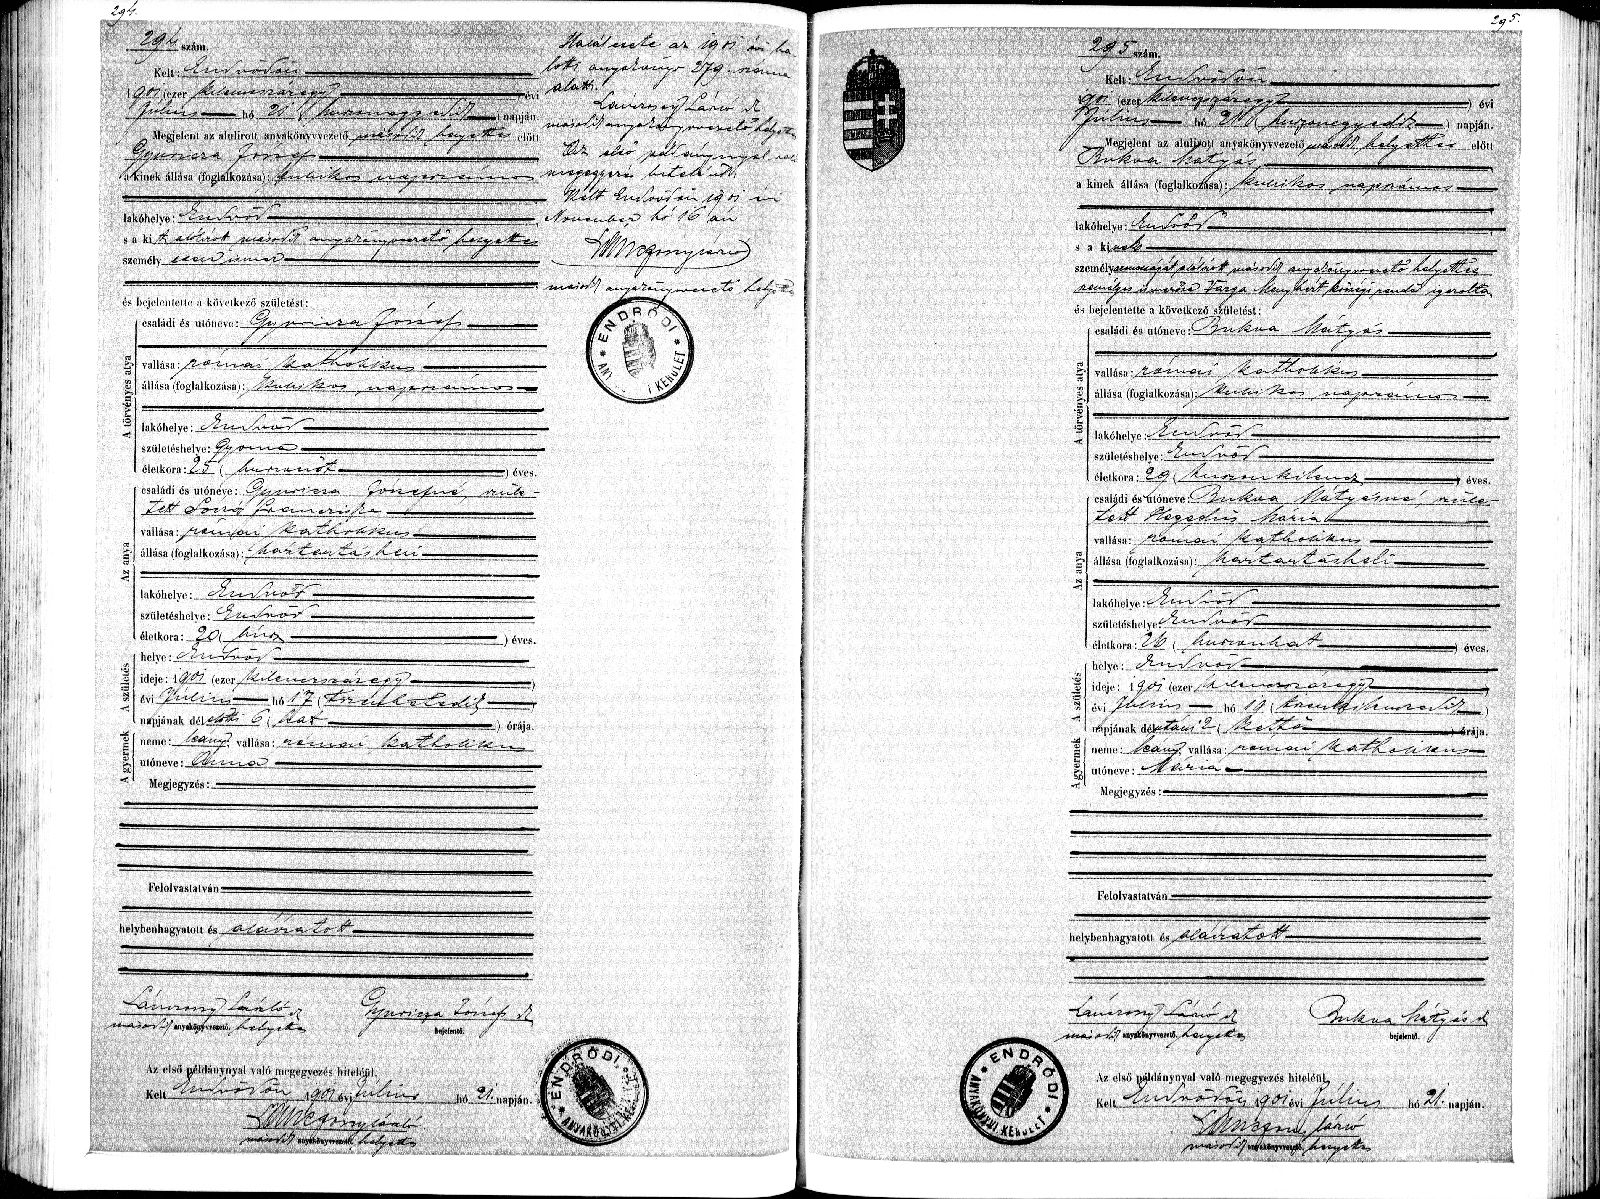 294.
294 szám.
Kelt: Endrődön
1901 (ezer kilenczszázegy) évi
Július hó 21 (huszonegyedik) napján.
Megjelent az alulirott anyakönyvvezető másodh helyettes előtt
Gyuricza József
a kinek állása (foglalkozása): kubikos napszámos
lakóhelye: Endrőd
s a kit alólirott másodh anyakönyvvezető helyettes
személyesen ismer
és bejelentette a következő születést:
A törvényes atya
családi és utóneve: Gyuricza József
vallása: római katholikus
állása (foglalkozása): kubikos napszámos
lakóhelye: Endrőd
születéshelye: Gyoma
életkora: 25 (huszonöt) éves.
Az anya
családi és utóneve: Gyuricza Józsefné, szüle-
tett Soós Francziska
vallása: római katholikus
állása (foglalkozása): háztartásbeli
lakóhelye: Endrőd
születéshelye: Endrőd
életkora: 20 (húsz) éves.
A születés
helye: Endrőd
ideje: 1901 (ezer kilenczszázegy)
évi Július hó 17 (tizenhetedik)
napjának délelőtti 6 (hat) órája.
A gyermek
neme: leány, vallása: római katholikus
utóneve: Anna
Megjegyzés:
Felolvastatván
helybenhagyatott és aláíratott
másodh anyakönyvvezető. helyettes
Gyuricza József
bejelentő.
Az első példánynyal való megegyezés hiteléül.
Kelt Endrődön 1901 évi Július hó 21. napján.
másodh anyakönyvvezető helyettes
ENDRŐDI
Halálesete az 1901 évi ha
lotti anyakönyv 279. száma
alatt.
másodh anyakönyvvezető helyettes
Az első példánynyal való
megegyezés hiteléül.
Kelt Endrődön 1901 évi
November hó 16 án
másodh anyakönyvvezető helyettes
ENDRŐDI
KERÜLET
295.
295 szám.
Kelt: Endrődön
1901 (ezer kilenczszázegy) évi
Július hó 21 (huszonegyedik) napján.
Megjelent az alulirott anyakönyvvezető másodh helyettes előtt
Bukva Mátyás
a kinek állása (foglalkozása): kubikos napszámos
lakóhelye: Endrőd
s a kinek
személyazonosságát alólirott másodh anyakönyvvezető helyettes
személyes ismerőse Varga Menyhért községi rendőr igazolta
és bejelentette a következő születést:
A törvényes atya
családi és utóneve: Bukva Mátyás
vallása: római katholikus
állása (foglalkozása): kubikos napszámos
lakóhelye: Endrőd
születéshelye: Endrőd
életkora: 29 (huszonkilencz) éves.
Az anya
családi és utóneve: Bukva Mátyásné, szüle-
tett Hegedűs Mária
vallása: római katholikus
állása (foglalkozása): háztartásbeli
lakóhelye: Endrőd
születéshelye: Endrőd
életkora: 26 (huszonhat) éves.
A születés
helye: Endrőd
ideje: 1901 (ezer kilenczszázegy)
évi Július hó 19 (tizenkilenczedik)
napjának délutáni 2 (kettő) órája.
A gyermek
neme: leány, vallása: római katholikus
utóneve: Mária
Megjegyzés:
Felolvastatván
helybenhagyatott és aláíratott
másodh anyakönyvvezető. helyettes
Bukva Mátyás
bejelentő.
Az első példánynyal való megegyezés hiteléül.
Kelt Endrődön 1901 évi Július hó 21. napján.
másodh anyakönyvvezető helyettes
ENDRŐDI
ANYAKÖNYVI KERÜLET